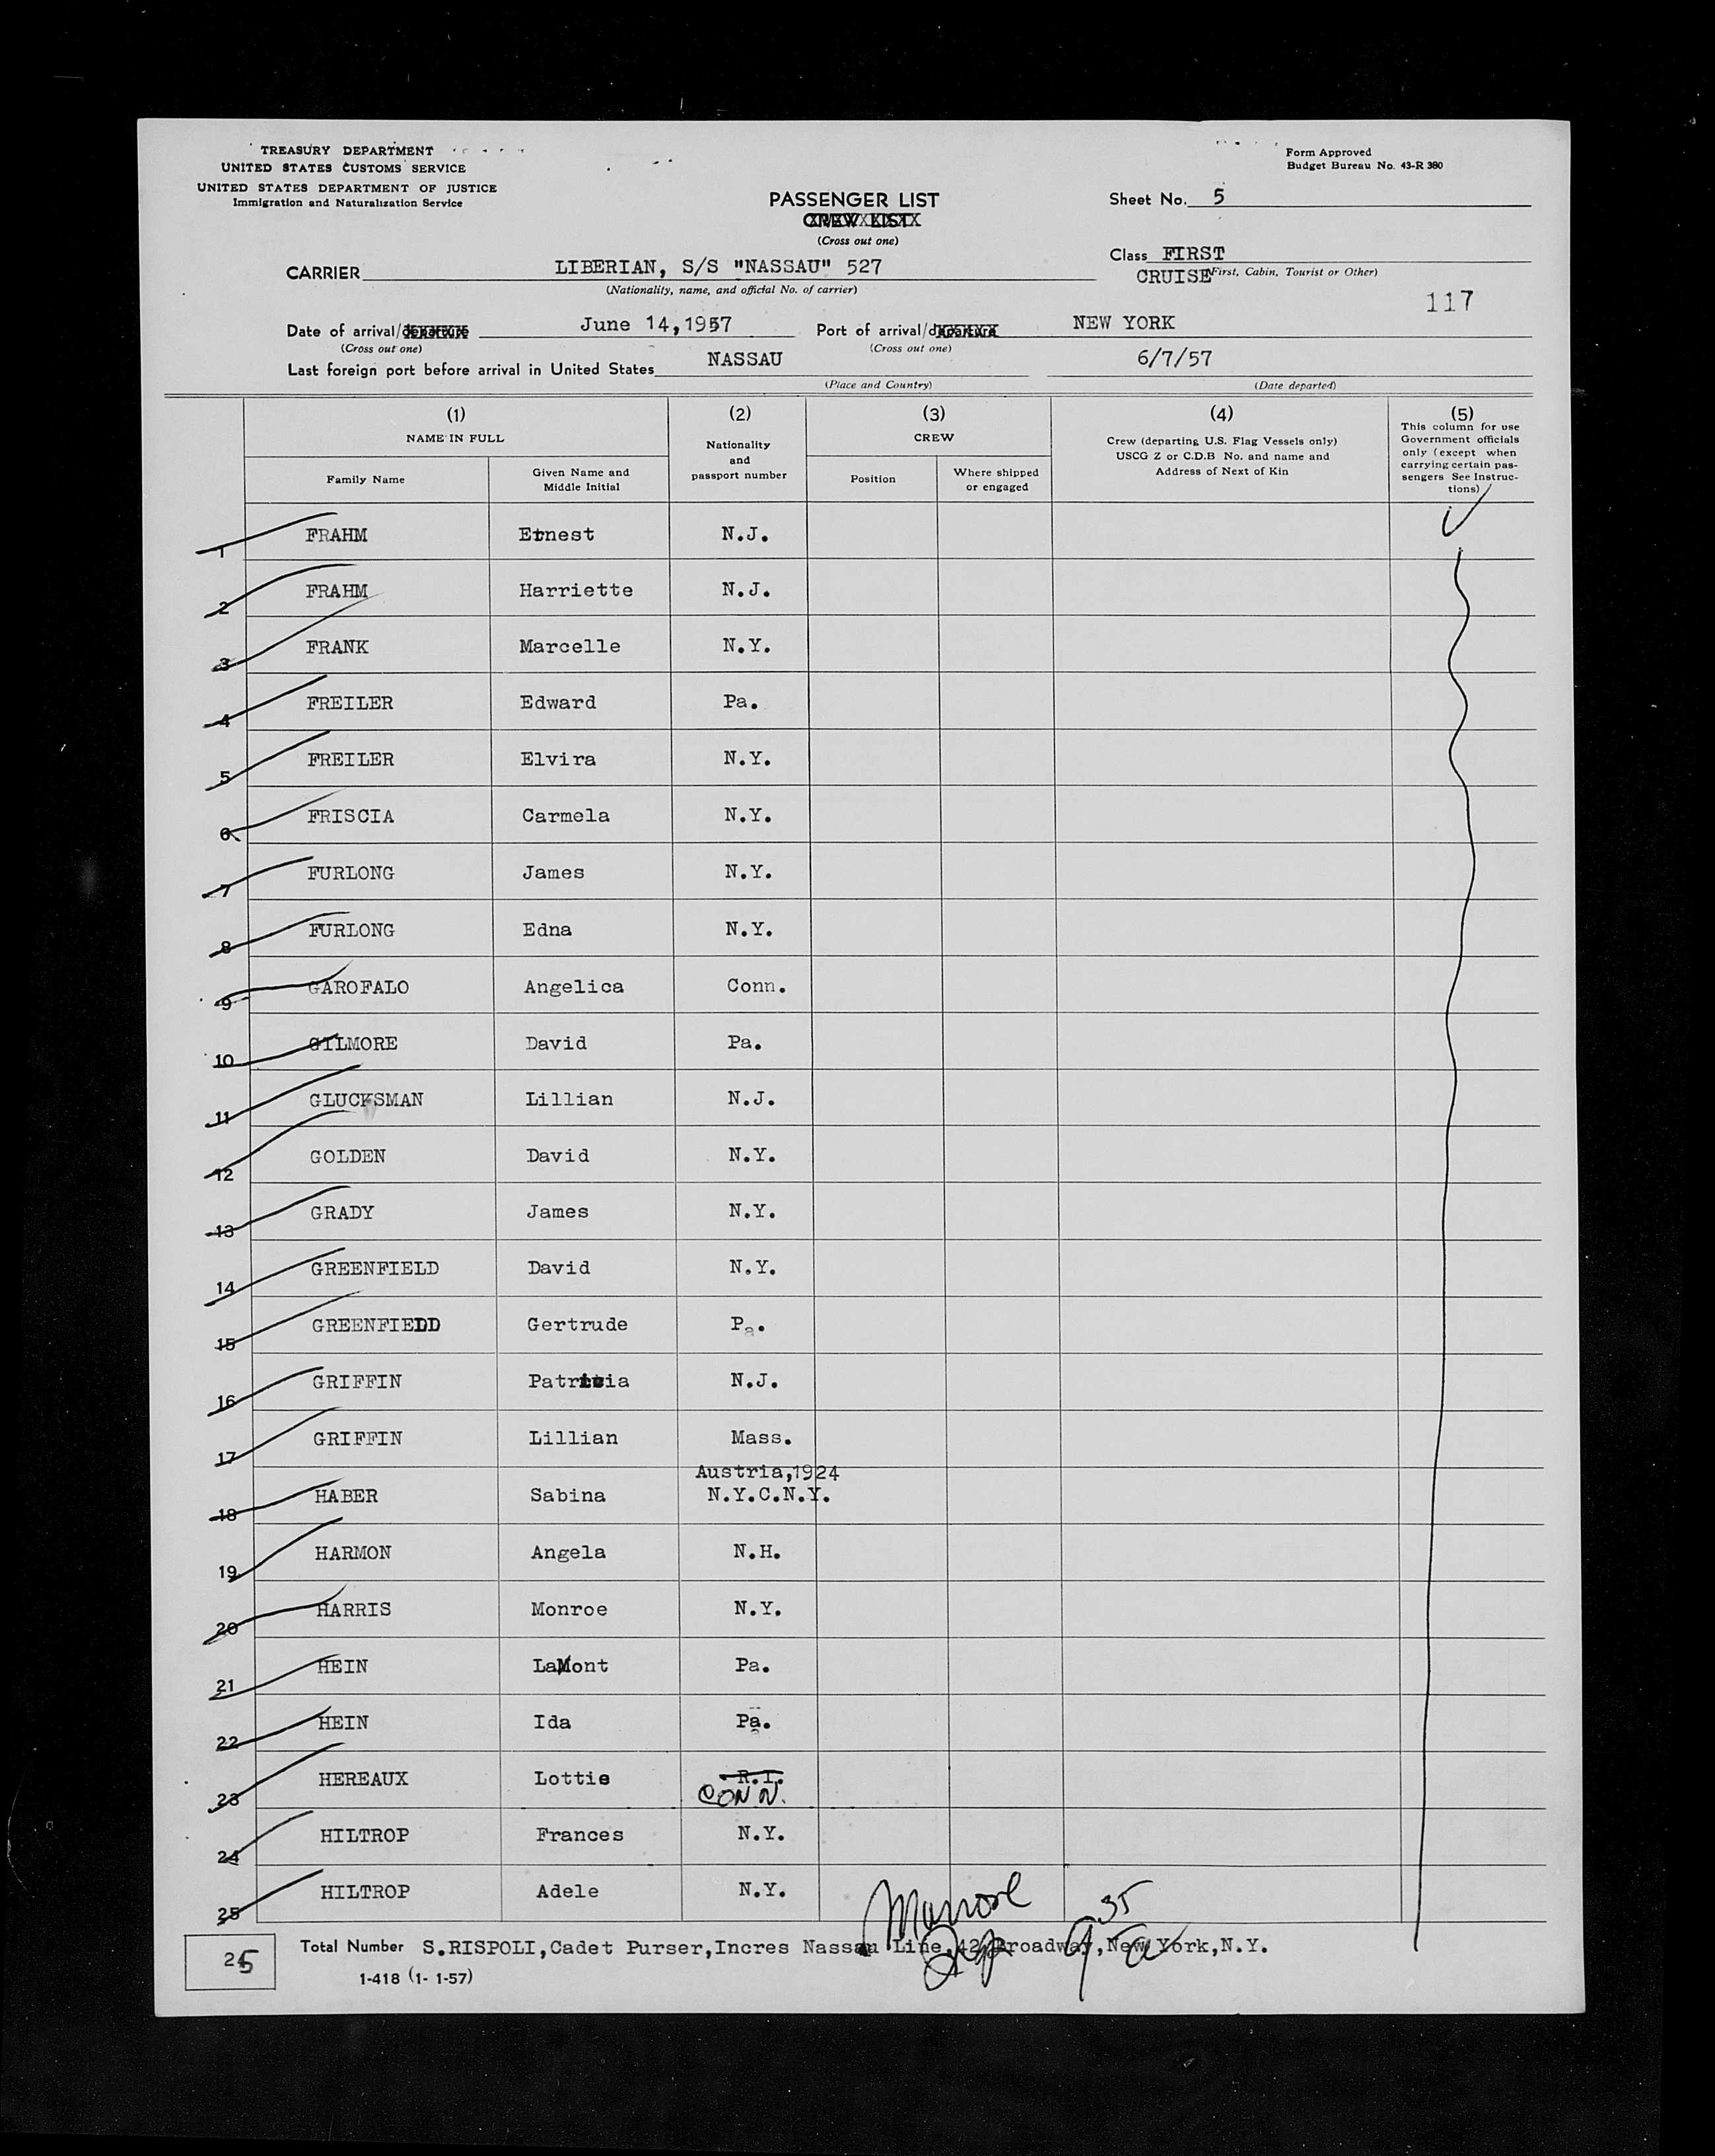 TREASURY DEPARTMENT
UNITED STATES CUSTOMS SERVICE
UNITED STATES DEPARTMENT OF JUSTICE
Immigration and Naturalization Service
Form Approved
Budget Bureau No. 43-R 380
PASSENGER LIST
CREW LIST
(Cross out one)
Sheet No. 5
Class FIRST
CRUISE (First, Cabin, Tourist or Other)
CARRIER LIBERIAN, S/S "NASSAU" 527
(Nationality, name, and official No. of carrier)
117
Date of arrival/departure June 14,1957 Port of arrival/departure NEW YORK
(Cross out one) (Cross out one)
Last foreign port before arrival in United States NASSAU 6/7/57
(Place and Country) (Date departed)
(1) (2) (3) (4) (5)
NAME IN FULL
Family Name
Given Name and
Middle Initial
Nationality
and
passport number
CREW
Position
Where shipped
or engaged
Crew (departing U.S. Flag Vessels only)
USCG Z or C.D.B No. and name and
Address of Next of Kin
This column for use
Government officials
only (except when
carrying certain pas-
sengers See Instruc-
tions)
1 FRAHM Ernest N.J.
2 FRAHM Harriette N.J.
3 FRANK Marcelle N.Y.
4 FREILER Edward Pa.
5 FREILER Elvira N.Y.
6 FRISCIA Carmela N.Y.
7 FURLONG James N.Y.
8 FURLONG Edna N.Y.
9 GAROFALO Angelica Conn.
10 GILMORE David Pa.
11 GLUCKSMAN Lillian N.J.
12 GOLDEN David N.Y.
13 GRADY James N.Y.
14 GREENFIELD David N.Y.
15 GREENFIELD Gertrude Pa.
16 GRIFFIN Patricia N.J.
17 GRIFFIN Lillian Mass.
Austria,1924
18 HABER Sabina N.Y.C.N.Y.
19 HARMON Angela N.H.
20 HARRIS Monroe N.Y.
21 HEIN LaMont Pa.
22 HEIN Ida Pa.
23 HEREAUX Lottie R.I.
CONN.
24 HILTROP Frances N.Y.
25 HILTROP Adele N.Y.
25 Total Number S.RISPOLI,Cadet Purser,Incres Nassau Line,42 Broadway,New York,N.Y.
1-418 (1- 1-57)